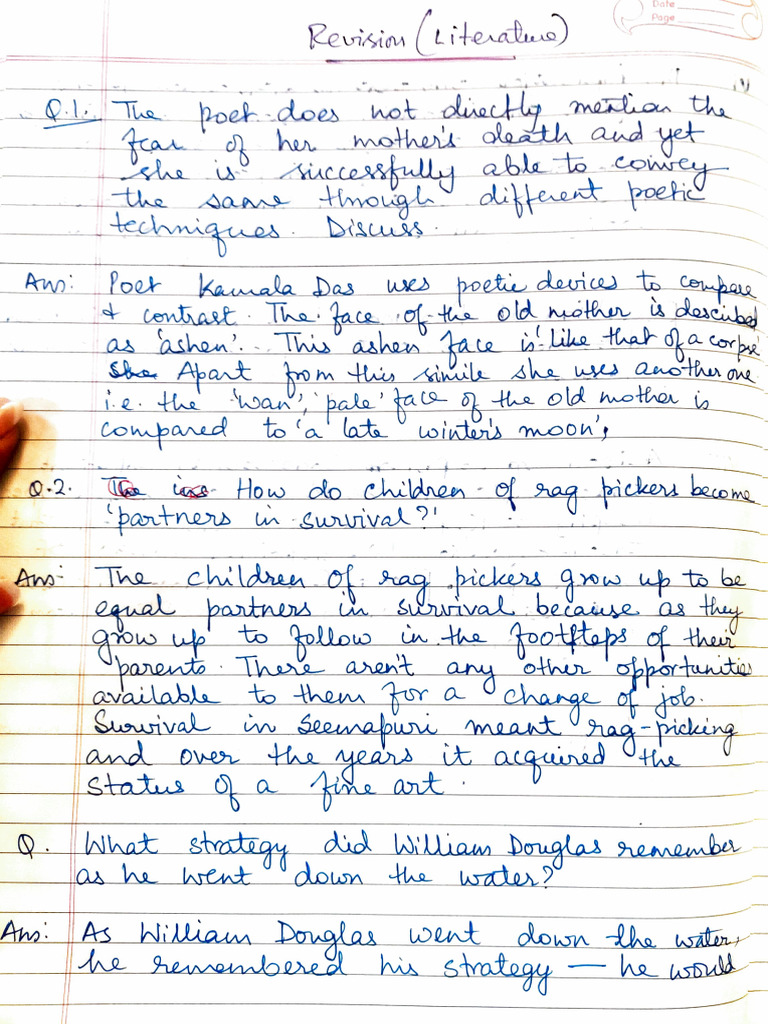 Date
Page
Revision (Literature)
Q.1. The poet does not directly mention the
fear of her mother's death and yet
she is successfully able to convey
the same through different poetic
techniques. Discuss.
Ans: Poet Kamala Das uses poetic devices to compare
& contrast. The face of the old mother is described
as 'ashen'. This ashen face is 'like that of a corpse'
She Apart from this simile she uses another one
i.e. the 'wan', 'pale' face of the old mother is
compared to 'a late winter's moon',
Q.2. How do children of rag pickers become
'partners in survival?'
Ans: The children of rag pickers grow up to be
equal partners in survival because as they
grow up to follow in the footsteps of their
parents. There aren't any other opportunities
available to them for a change of job.
Survival in Seemapuri meant rag-picking
and over the years it acquired the
status of a fine art.
Q. What strategy did William Douglas remember
as he went down the water?
Ans: As William Douglas went down the water,
he remembered his strategy — he would